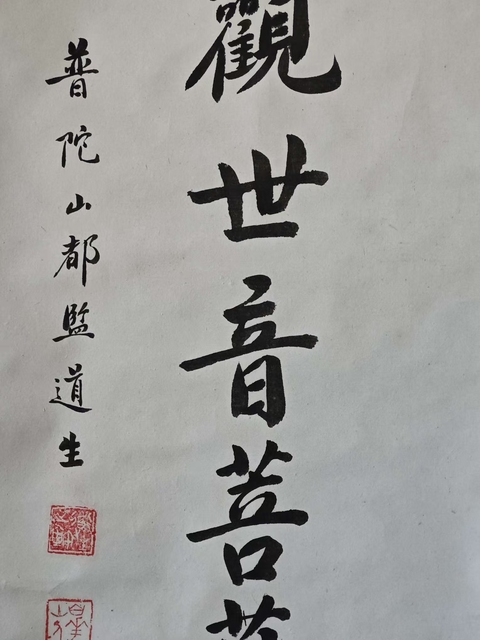 觀世音菩
普陀山都監道生